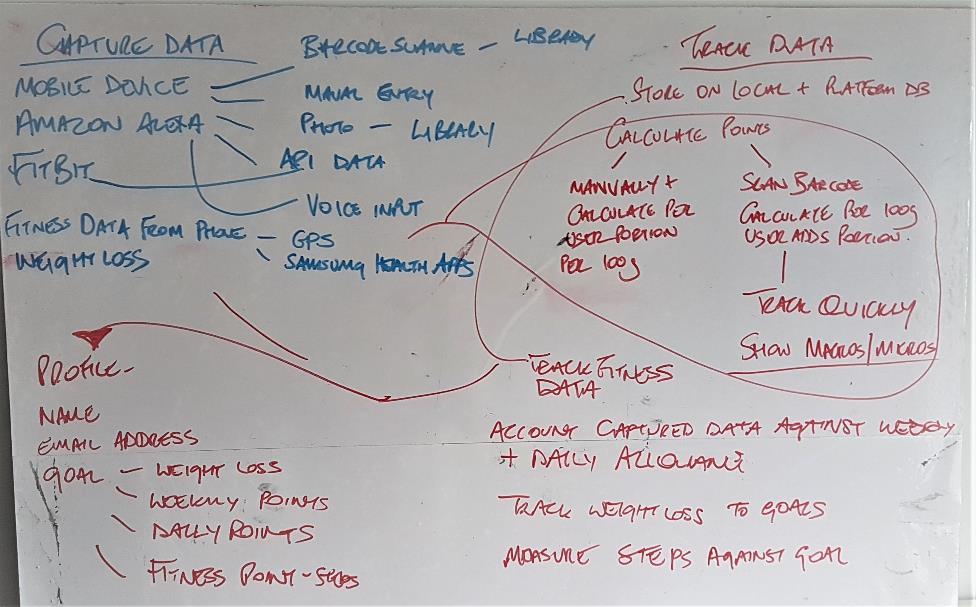 CAPTURE DATA
MOBILE DEVICE
AMAZON ALEXA
FITBIT
FITNESS DATA FROM PHONE
WEIGHT LOSS
BARCODE SCANNE - LIBRARY
MANAL ENTRY
PHOTO - LIBRARY
API DATA
VOICE INPUT
GPS
SAMSUNG HEALTH APPS
TRACK DATA
STORE ON LOCAL + PLATFORM DB
CALCULATE POINTS
MANUALLY +
CALCULATE PER
USER PORTION
PER 100g
SCAN BARCODE
CALCULATE PER 100g
USER ADDS PORTION.
TRACK QUICKLY
SHOW MACROS/MICROS
PROFILE-
NAME
EMAIL ADDRESS
GOAL - WEIGHT LOSS
WEEKLY POINTS
DAILY POINTS
FITNESS POINT-STEPS
TRACK FITNESS
DATA
ACCOUNT CAPTURED DATA AGAINST WEEKLY
+ DAILY ALLOWANCE
TRACK WEIGHT LOSS TO GOALS
MEASURE STEPS AGAINST GOAL